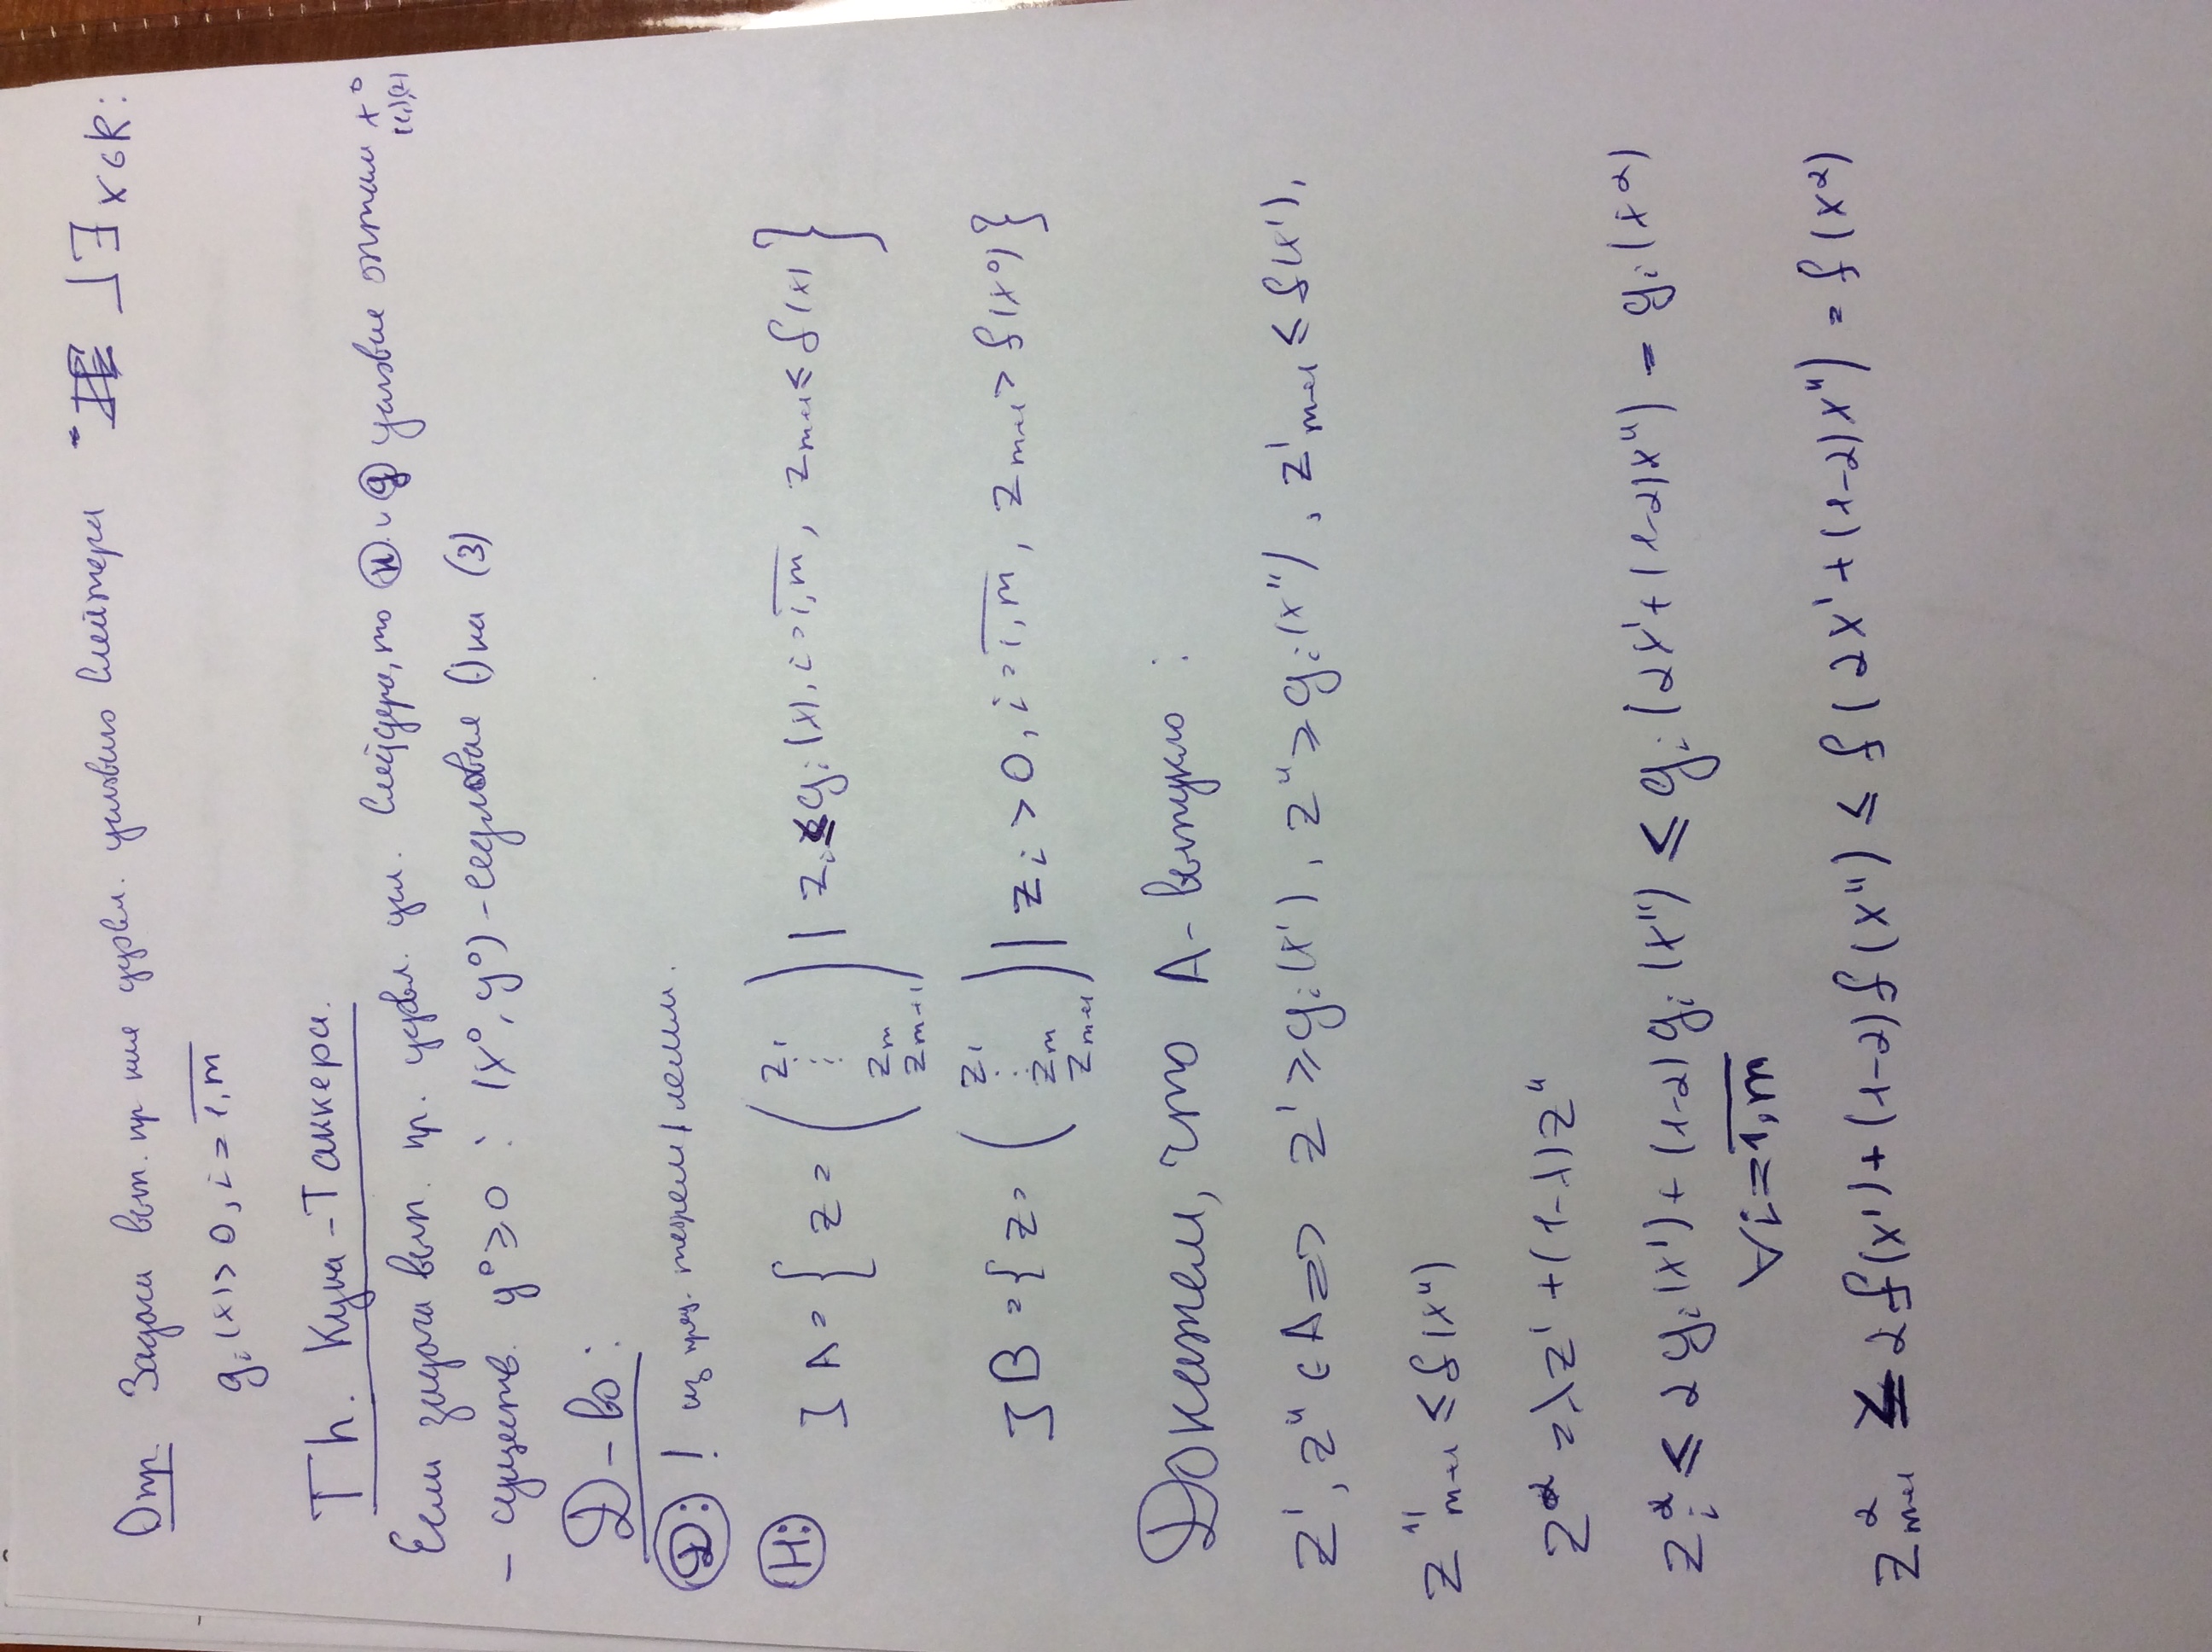 Опр. Задача вып. пр-ния удовл. условию Слейтера ∃ x∈R:
gᵢ(x)>0, i=1,m
Th. Куна-Таккера.
Если задача вып. пр. удовл. усл. Слейдера, то Н и Д условие оптим x⁰ (1),(2)
– существ. y⁰≥0 : (x⁰, y⁰) – седловая (·)ка (3)
Д-во:
Д: ! из пред. теорем/лемм.
Н: ] A = { z = ( z₁ ⋮ zₘ zₘ₊₁ ) | zᵢ ≤ gᵢ(x), i=1,m, zₘ₊₁ ≤ f(x) }
] B = { z = ( z₁ ⋮ zₘ zₘ₊₁ ) | zᵢ > 0, i=1,m, zₘ₊₁ > f(x⁰) }
Докажем, что A – выпукло :
z', z" ∈ A => z' ≥ gᵢ(x'), z" ≥ gᵢ(x"), z'ₘ₊₁ ≤ f(x'),
z"ₘ₊₁ ≤ f(x")
z^α = λz' + (1-λ)z"
zᵢ^α ≤ αgᵢ(x') + (1-α)gᵢ(x") ≤ gᵢ(αx' + (1-α)x") = gᵢ(x^α)
∀i=1,m
zₘ₊₁^α ≤ αf(x') + (1-α)f(x") ≤ f(αx' + (1-α)x") = f(x^α)